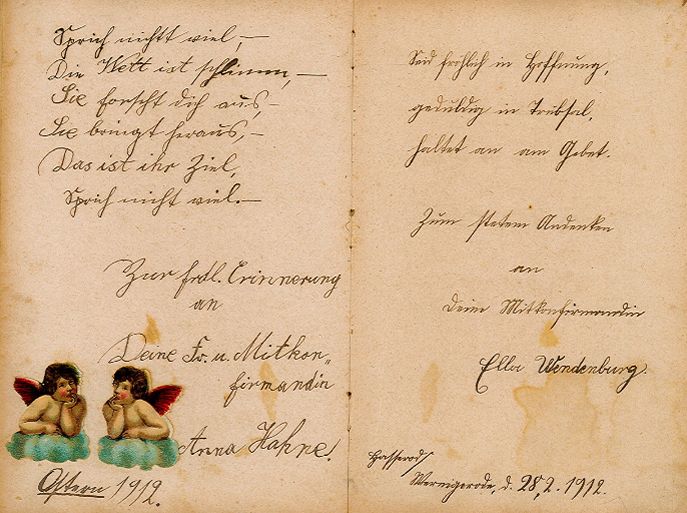 Sprich nicht viel, –
Die Welt ist schlimm, –
Sie forscht dich aus, –
Sie bringt heraus, –
Das ist ihr Ziel,
Sprich nicht viel. –
Zur frdl. Erinnerung
an
Deine Fr. u. Mitkon-
firmandin
Anna Hahne.
Ostern 1912.
Seid fröhlich in Hoffnung,
geduldig in Trübsal,
haltet an am Gebet.
Zum stetem Andenken
an
Deine Mitkonfirmandin
Ella Wendenburg.
Hasserode/
Wernigerode, d. 28,2. 1912.